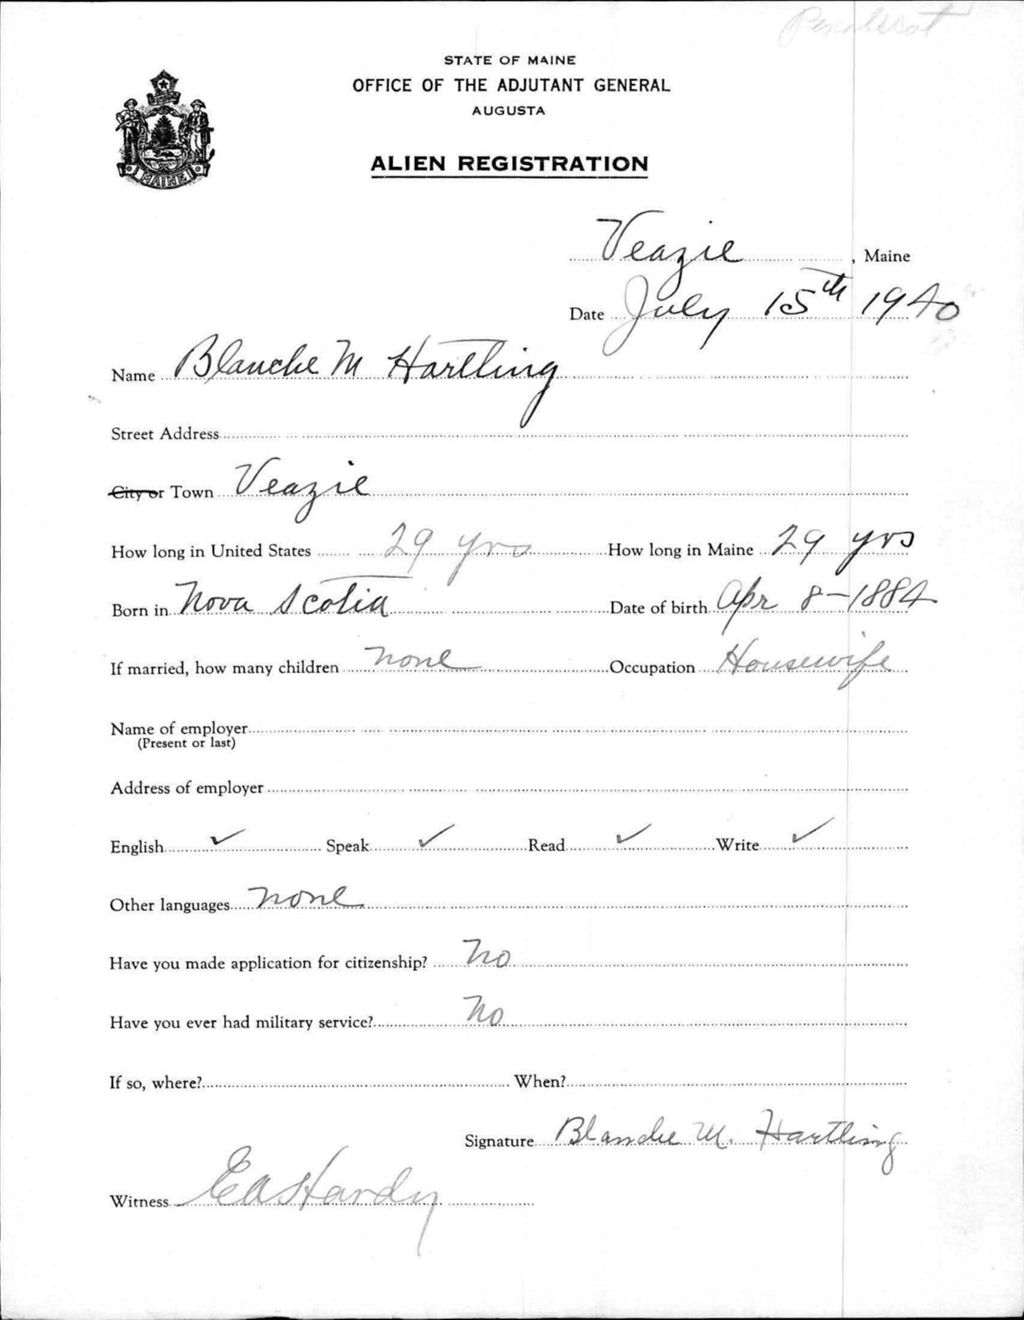 Penobscot
STATE OF MAINE
OFFICE OF THE ADJUTANT GENERAL
AUGUSTA
ALIEN REGISTRATION
MAINE
Veazie, Maine
Date July 15th 1940
Name Blanche M Hartling
Street Address
City or Town Veazie
How long in United States 29 yrs How long in Maine 29 yrs
Born in Nova Scotia Date of birth Apr 8-1884
If married, how many children none Occupation Housewife
Name of employer
(Present or last)
Address of employer
English ✓ Speak ✓ Read ✓ Write ✓
Other languages none
Have you made application for citizenship? No
Have you ever had military service? No
If so, where? When?
Signature Blanche M. Hartling
Witness E A Hardy